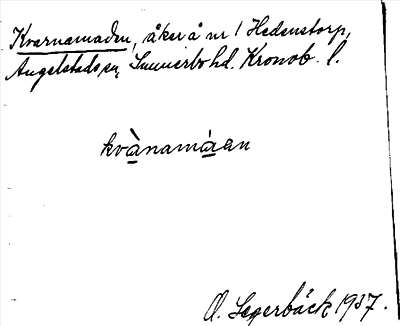 Kvarnamaden, åker å nr 1 Hedenstorp,
Angelstads sn, Sunnerbo hd. Kronob. l.
kvànamáan
O. Segerbäck 1937.